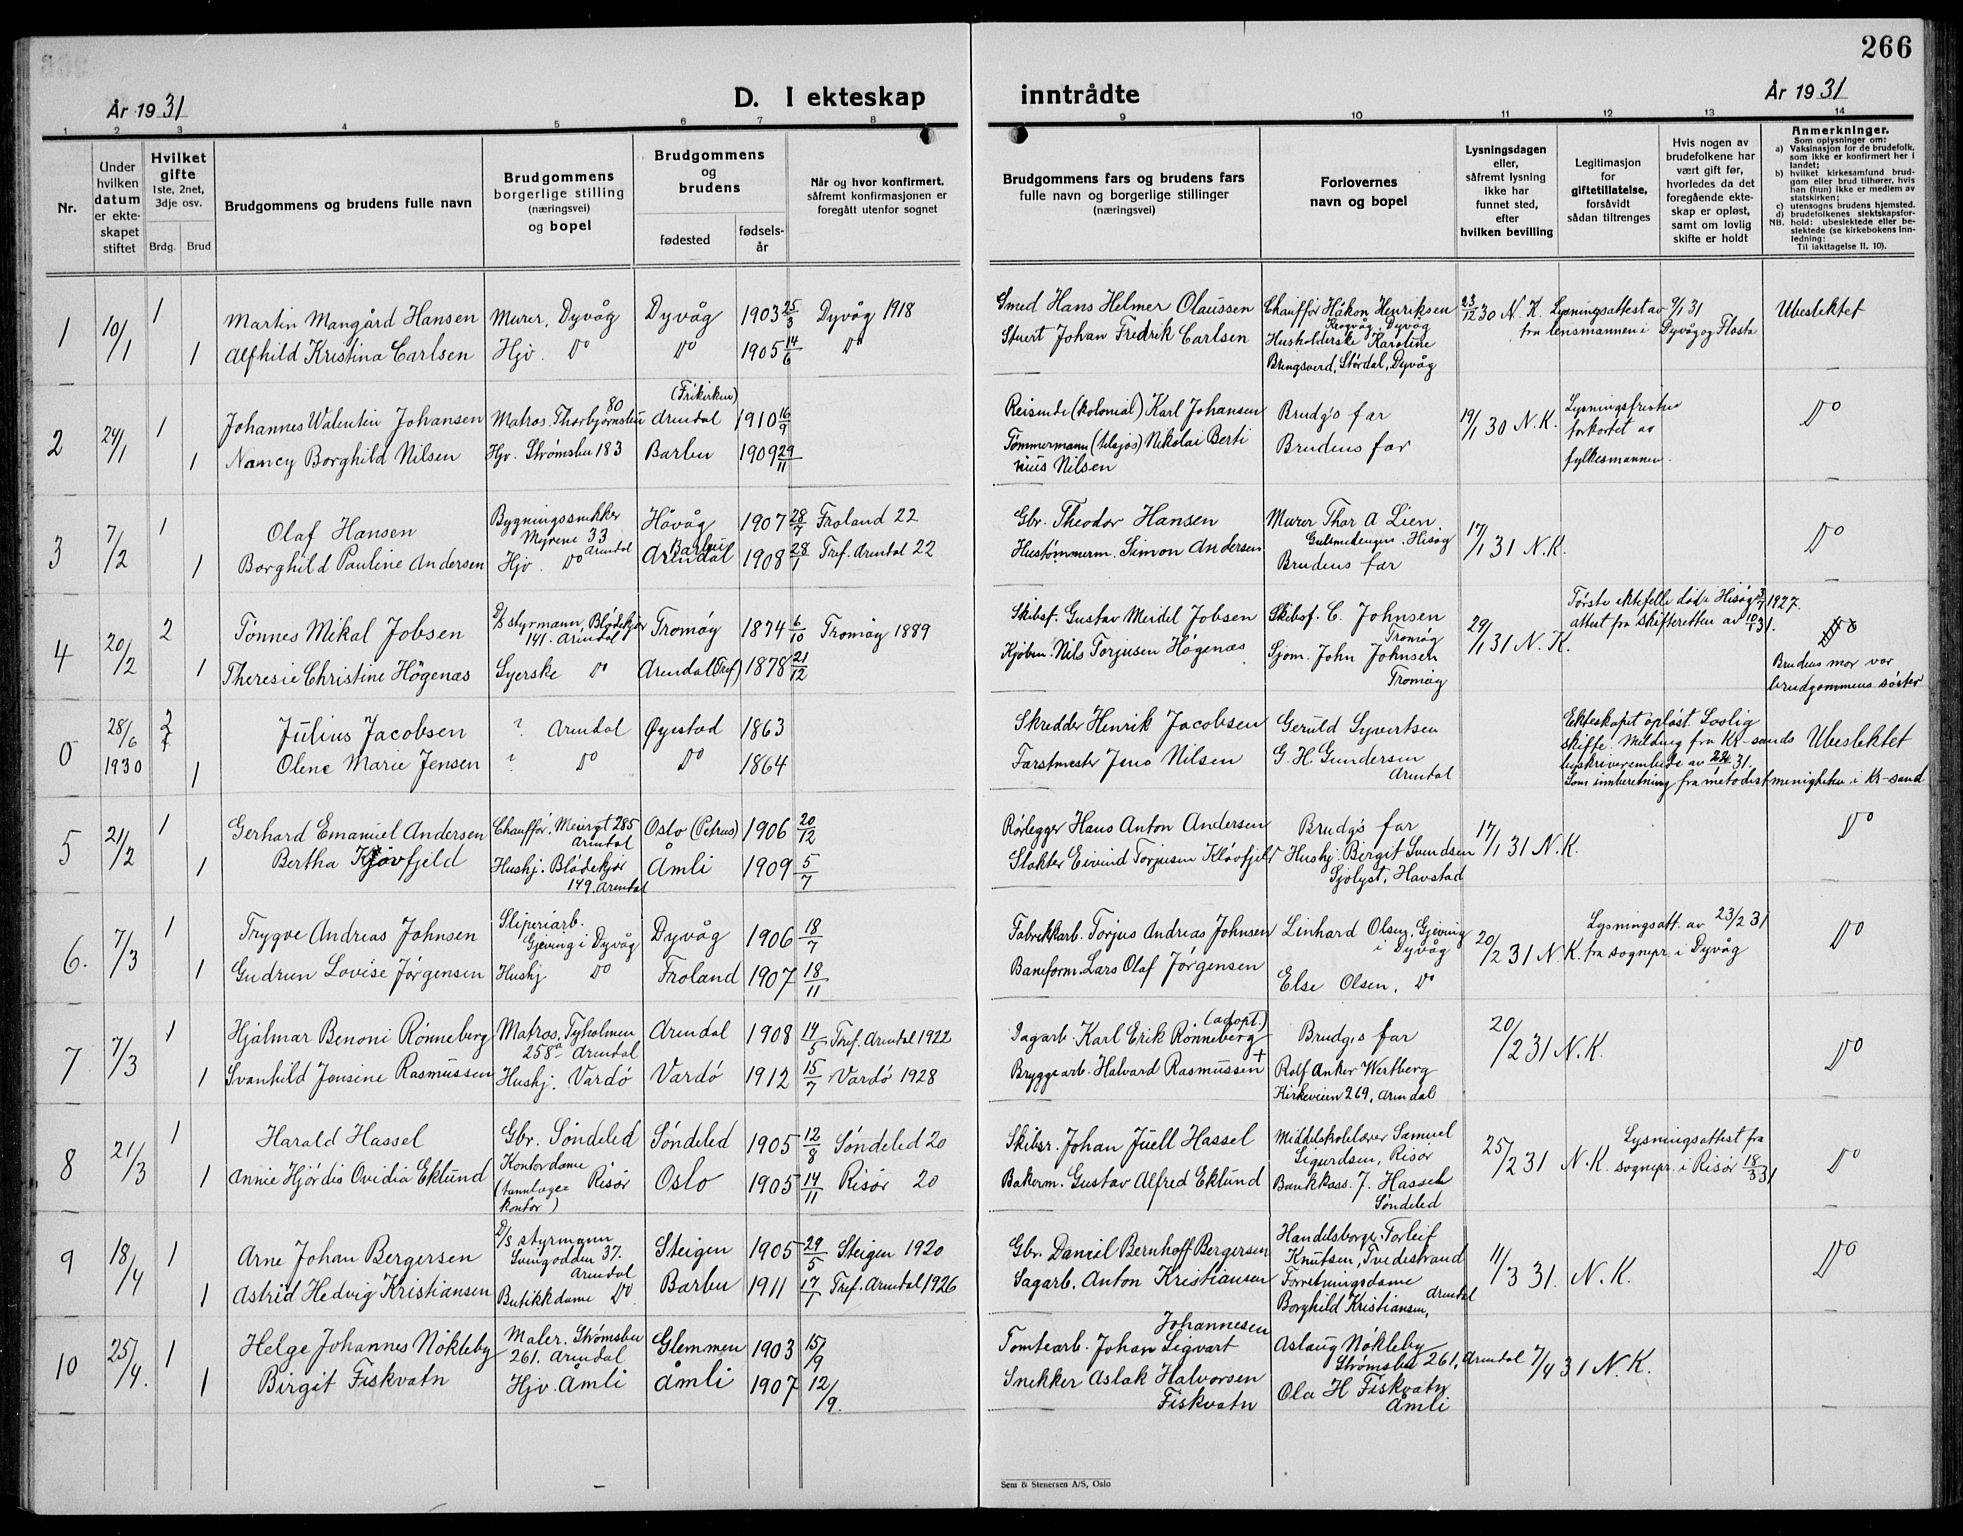 266
År 1931
D. I ekteskap inntrådte
År 1931
1 2 3 4 5 6 7 8 9 10 11 12 13 14
Nr.
Under hvilken datum er ekteskapet stiftet
Hvilket gifte
1ste, 2net, 3dje osv.
Brdg. Brud
Brudgommens og brudens fulle navn
Brudgommens borgerlige stilling (næringsvei) og bopel
Brudgommens og brudens
fødested
fødselsår
Når og hvor konfirmert, såfremt konfirmasjonen er foregått utenfor sognet
Brudgommens fars og brudens fars fulle navn og borgerlige stillinger (næringsvei)
Forlovernes navn og bopel
Lysningsdagen eller, såfremt lysning ikke har funnet sted, efter hvilken bevilling
Legitimasjon for giftetillatelse, forsåvidt sådan tiltrenges
Hvis nogen av brudefolkene har vært gift før, hvorledes da det foregående ekteskap er opløst, samt om lovlig skifte er holdt
Anmerkninger.
Som oplysninger om:
a) Vaksinasjon for de brudefolk, som ikke er konfirmert her i landet;
b) hvilket kirkesamfund brudgom eller brud tilhører, hvis han (hun) ikke er medlem av statskirken;
c) utensogns brudens hjemsted.
d) brudefolkenes slektskapsforhold: ubeslektede eller beslektede (se kirkebokens Innledning:
NB.
Til iakttagelse II. 10).
1 10/1 1 Martin Mangård Hansen Murer, Dyvåg Dyvåg 1903 25/3 Dyvåg 1918 Smed Hans Helmer Olaussen Chauffør Håkon Henriksen Krogvåg, Dyvåg 23/12 30 N.K. Lysningsattest av 9/1 31 fra lensmannen i Dyvåg og Flosta Ubeslektet
1 Alfhild Kristina Carlsen Hjv. Do Do 1905 14/6 Do Stuert Johan Fredrik Carlsen Husholderske Karoline Bringsverd, Stördal, Dyvåg
2 24/1 1 Johannes Walentin Johansen Matros. Thorbjørnsbu 80 (Frikirken) Arendal 1910 16/9 Reisende (kolonial) Karl Johansen Brudg's far 19/1 30 N.K. Lysningsfristen forkortet av fylkesmannen. Do
1 Nancy Borghild Nilsen Hjv. Strømsbu 183 Barbu 1909 29/11 Tømmermann (tilsjøs) Nikolai Bertinius Nilsen Brudens far
3 7/2 1 Olaf Hansen Bygningssnikker Myrene 33 Arendal Hövåg 1907 28/7 Froland 22 Gbr. Theodor Hansen Murer Thor A Lien, Hisøy 17/1 31 N.K. Do
1 Borghild Pauline Andersen Hjv. Do Barbu Arendal 1908 28/1 Tref. Arendal 22 Hustømmerm. Simon Andersen Brudens far
4 20/2 2 Tönnes Mikal Jobsen D/s styrmann, Blødekjær 141. Arendal Tromöy 1874 6/10 Tromöy 1889 Skibsf. Gustav Meidel Jobsen Skibsf. C. Johnsen Tromøy 29/1 31 N.K. Første ektefelle död i Hisøy 1927. attest fra skifteretten av 10/1 31. Do
1 Theresie Christine Högenæs Syerske Do Arendal (Tref) 1878 21/12 Kjøbm. Nils Torjusen Høgenæs Sjøm. John Johnsen Tromøy Brudens mor var brudgommens söster
0 28/6 1930 2 Julius Jacobsen ? Arendal Øyestad 1863 Skredder Henrik Jacobsen Geruld Syvertsen Ekteskapet opløst. Lovlig skifte. Melding fra Kr-sands byskriverembede av 31. Ubeslektet
1 Olene Marie Jensen ? Do Do 1864 Farstmester Jens Nilsen G. H. Gundersen Arendal Som innberetning fra metodistmenigheten i Kr-sand
5 21/2 1 Gerhard Emanuel Andersen Chauffør. Meiergt 285 Arendal Oslo (Petrus) 1906 20/12 Rørlegger Hans Anton Andersen Brudg's far 17/1 31 N.K. Do
1 Bertha Kløvfjeld Hushj. Blødekjær 149. Arendal Åmli 1909 5/7 Slakter Eivind Torjusen Kløvfjeld Hushj. Birgit Svendsen Sjølyst, Havstad
6. 7/3 1 Trygve Andreas Johnsen Sliperiarb. Gjeving i Dyvåg Dyvåg 1906 18/7 Fabrikkarb. Torjus Andreas Johnsen Linhard Olsen, Gjeving i Dyvåg 20/2 31 N.K. Lysningsatt. av 23/2 31 fra sognepr. i Dyvåg Do
1 Gudrun Lovise Jørgensen Hushj Do Froland 1907 18/11 Baneform. Lars Olaf Jørgensen Else Olsen, Do
7 7/3 1 Hjalmar Benoni Rønneberg Matros, Tyholmen 258a Arendal Arendal 1908 14/5 Tref. Arendal 1922 Dagarb. Karl Erik Rønneberg (adopt.) Brudg's far 20/2 31 N.K. Do
1 Svanhild Jensine Rasmussen Hushj. Vardö Vardö 1912 15/7 Vardö 1928 Bryggearb. Halvard Rasmussen + Rolf Anker Wertberg Kirkeveien 269, Arendal
8 21/3 1 Harald Hassel Gbr. Söndeled Söndeled 1905 12/8 Söndeled 20 Skibsr. Johan Juell Hassel Middelskolelærer Samuel Sigurdsen, Risör 25/2 31 N.K. Lysningsattest fra sognepr. i Risør 18/3 31 Do
1 Annie Hjördis Ovidia Eklund Kontordame (tannlægekontor) Risör Oslo 1905 14/11 Risör 20 Bakerm. Gustav Alfred Eklund Bankkass. J. Hassel Söndeled
9 18/4 1 Arne Johan Bergersen D/s styrmann Svingodden 37. Arendal Steigen 1905 29/5 Steigen 1920 Gbr. Daniel Bernhoff Bergersen Handelsborger Torleif Knutsen, Tvedestrand 11/3 31. N.K. Do
1 Astrid Hedvig Kristiansen Butikkdame Do Barbu 1911 17/1 Tref. Arendal 1926 Sagarb. Anton Kristiansen Forretningsdame Borghild Kristiansen, Arendal
10 25/4. 1 Helge Johannes Nökleby Maler. Strømsbu 261. Arendal Glemmen 1903 15/9 Tomtearb. Johan Sigvart Johannesen Aslaug Nökleby Strømsbu 261, Arendal 7/4 31 N.K.
1 Birgit Fiskvatn Hjv. Åmli Åmli 1907 12/9. Snekker Aslak Halvorsen Fiskvatn Ola H Fiskvatn Åmli
Sem & Stenersen A/S, Oslo